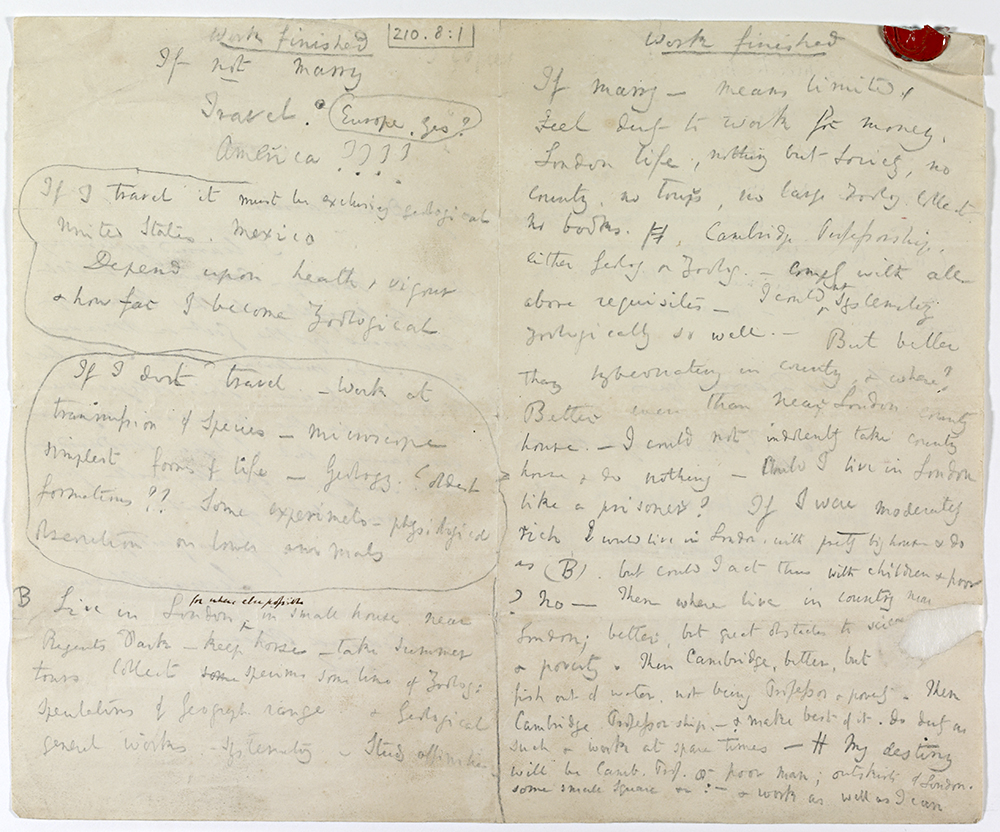 210.8:1
Work finished
If not marry
Travel. Europe, yes?
America ????
If I travel it must be exclusively geological
United States. Mexico
Depend upon health & vigour
& how far I become Zoological
If I dont travel — Work at
transmission of Species — microscope
simplest forms of life — Geology. ?oldest
formations?? Some experiments — physiological
observation on lower animals
B Live in London for where else possible in small house near
Regents Park — keep horse — take Summer
tours Collect specimens some line of Zoolog:
Speculations of Geograph. range & Geological
general works — Systematiz — Study affinities
Work finished
If marry — means limited,
Feel duty to work for money.
London life, nothing but Society, no
country, no tours, no large Zoolog. Collect.
No books. Cambridge Professorship,
either Geolog. or Zoolog. — comply with all
above requisites — I could not systematiz
zoologically so well. — But better
than hybernating in country, & where?
Better even than near London country
house. — I could not indolently take country
house & do nothing — Could I live in London
like a prisoner? If I were moderately
rich I would live in London, with pretty big house & do
as (B), but could I act thus with children & poor
? No — Then where live in country near
London; better; but great obstacles to science
& poverty. Then Cambridge, better, but
fish out of water, not being Professor & poverty. Then
Cambridge Professorship, — & make best of it. do duty as
such & work at spare times — My destiny
will be Camb. Prof. or poor man; outskirts of London.
some small Square &c: — & work as well as I can